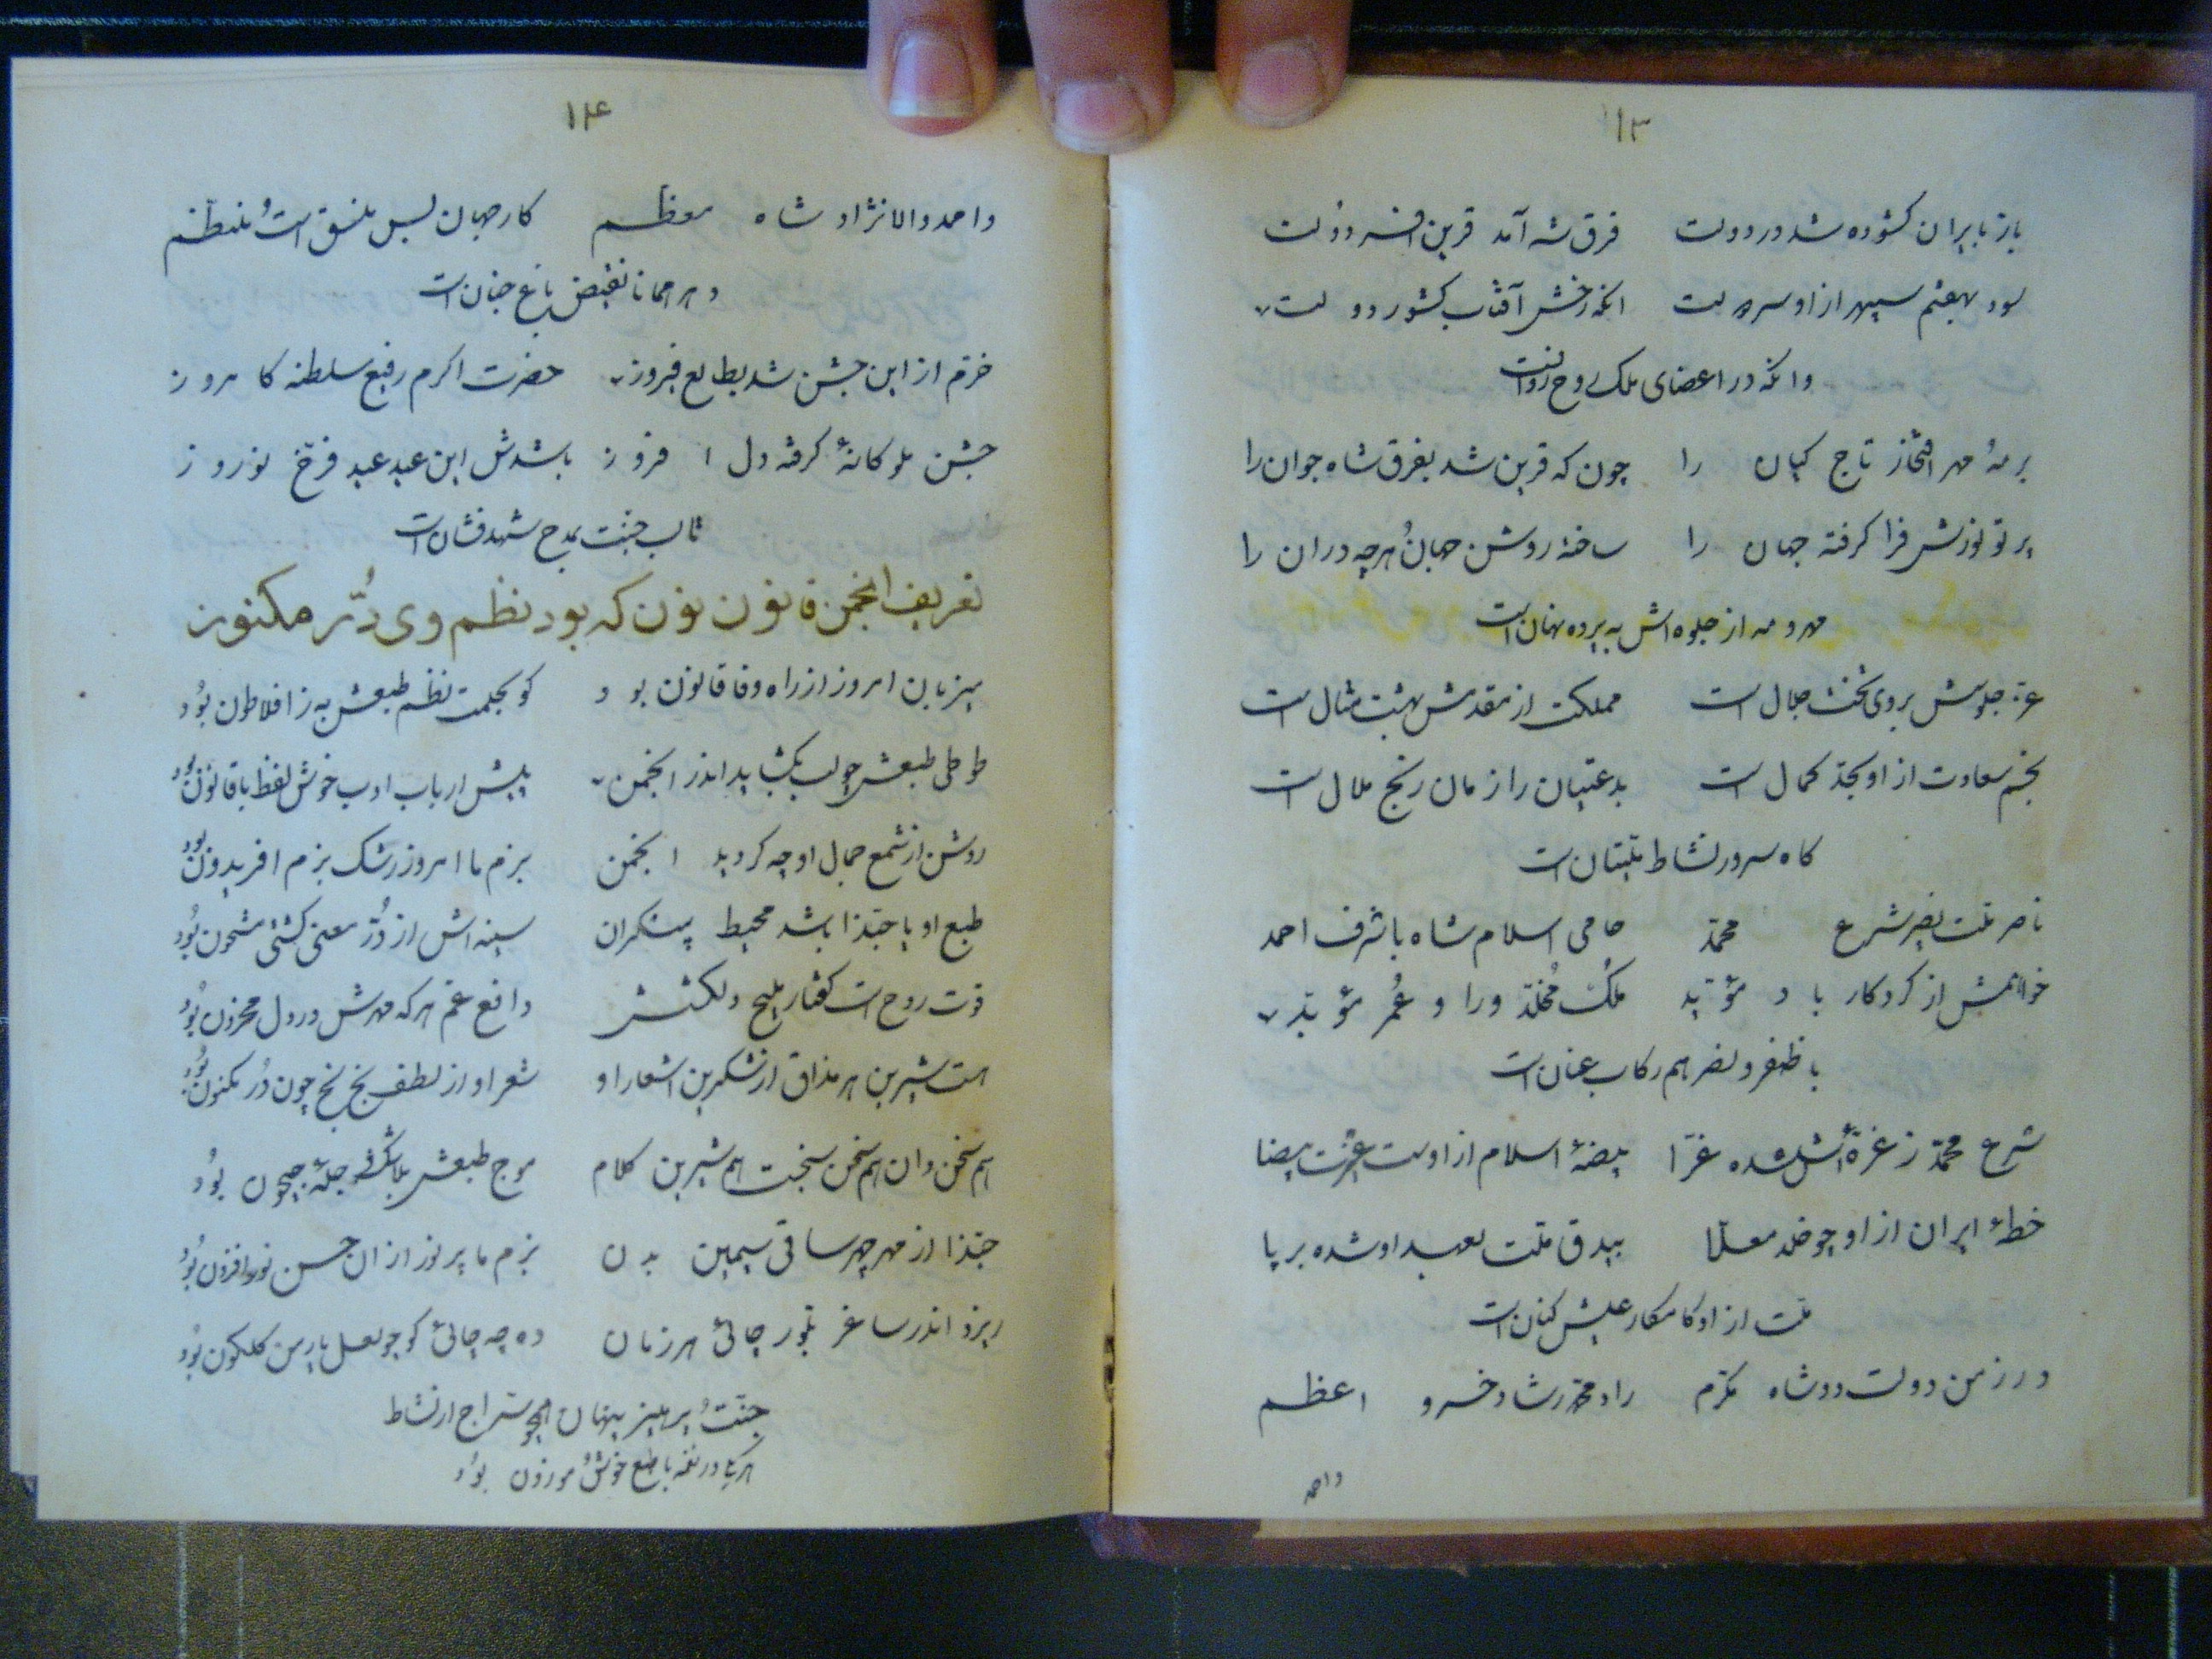 ۱۳
باز بایران کشوده شد در دولت فرق شه آمد قرین افسر دولت
بود بهفتم سپهر از او سر ملت انکه رخش آفتاب کشور دولت
وانکه در اعضای ملک روح روانست
بر مه و مهر افتخار تاج کیان را چون که قرین شد بفرق شاه جوان را
پرتو نورش فرا کرفته جهان را ساخته روشن جهان و هرچه در ان را
مهر و مه از جلوه اش به پرده نهان است
عز جلوسش بروی تخت جلال است مملکت از مقدمش بهشت مثال است
نجم سعادت از او بحد کمال است بدعتیان را زمان رنج ملال است
کاه سرور نشاط ملتیان است
ناصر ملت نصیر شرع محمد حامی اسلام شاه با شرف احمد
خواهمش از کردکار باد مؤید ملک مخلد ورا و عمر مؤبد
با ظفر و نصر هم رکاب عنان است
شرع محمد ز غره اش شده غرا بیضهٔ اسلام از اوست عزت بیضا
خطهٔ ایران از او چو خلد معلا بیدق ملت بعهد او شده بر پا
ملت از او کامکار عیش کنان است
در زمن دولت دو شاه مکرم راد محمد رشاد خسرو اعظم
واحمد
۱۴
واحمد والانژاد شاه معظم کار جهان بس منسق است و منظم
دهر همانا نقیض باغ جنان است
خرم از این جشن شد بطالع فیروز حضرت اکرم رفیع سلطنه کامروز
جشن ملوکانهٔ کرفته دل افروز باشدش این عید عید فرخ نوروز
تا لب جنت بمدح شهد فشان است
تعریف انجمن قانون نون که بود نظم وی در مکنون
میزبان امروز از راه وفا قانون بود کو بحکمت نظم طبعش به ز افلاطون بود
طوطی طبعش چو لب بکشاید اندر انجمن پیش ارباب ادب خوش لفظ با قانون بود
روشن از شمع جمال او چه کردید انجمن بزم ما امروز رشک بزم افریدون بود
طبع او یا حبذا باشد محیط بیکران سینه اش از در معنی کشتی مشحون بود
قوت روح است کفتار ملیح دلکشش دافع غم هر که مهرش در دل محزون بود
است شیرین هر مذاق از شکرین اشعار او شعر او از لطف بخ بخ چون در مکنون بود
هم سخن دان هم سخن سنجست هم شیرین کلام موج طبعش دجله جیحون بود
حبذا از مهر چهر ساقی سیمین بدن بزم ما پر نور از ان حسن نور افزون بود
ریزد اندر ساغر بلور چائی هر زمان ده چه چائی کو چو لعل یار من کلکون بود
جنت و پرهیز پنهان همچو سراج از نشاط
هر یکی در نغمه با طبع خوش و موزون بود